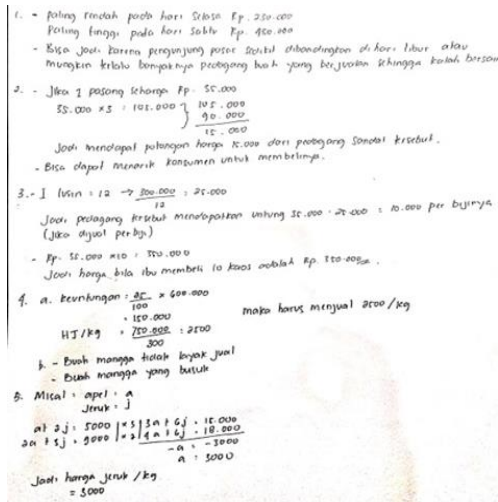 1. - Paling rendah pada hari Selasa Rp. 250.000
Paling tinggi pada hari Sabtu Rp. 450.000
- Bisa jadi karena pengunjung pasar sedikit dibandingkan di hari libur atau
mungkin terlalu banyaknya pedagang buah yang berjualan sehingga kalah bersain
2. - Jika 1 pasang seharga Rp. 35.000
35.000 x 3 = 105.000 } 105.000
90.000
15.000
Jadi mendapat potongan harga 15.000 dari pedagang sandal tersebut.
- Bisa dapat menarik konsumen untuk membelinya.
3. - 1 lusin = 12 → 300.000 / 12 = 25.000
Jadi pedagang tersebut mendapatkan untung 35.000 - 25.000 = 10.000 per bijinya
(Jika dijual per biji)
- Rp. 35.000 x 10 = 350.000
Jadi harga bila ibu membeli 10 kaos adalah Rp. 350.000
4. a. keuntungan = 25/100 x 600.000
= 150.000
maka harus menjual 2500/kg
HJ/kg = 750.000 / 300 = 2500
b. - Buah mangga tidak layak jual
- Buah mangga yang busuk
5. Misal = apel = a
Jeruk = j
a + 2j = 5000 | x 3 | 3a + 6j = 15.000
2a + 3j = 9000 | x 2 | 4a + 6j = 18.000
-a = -3000
a = 3000
Jadi harga jeruk /kg
= 3000